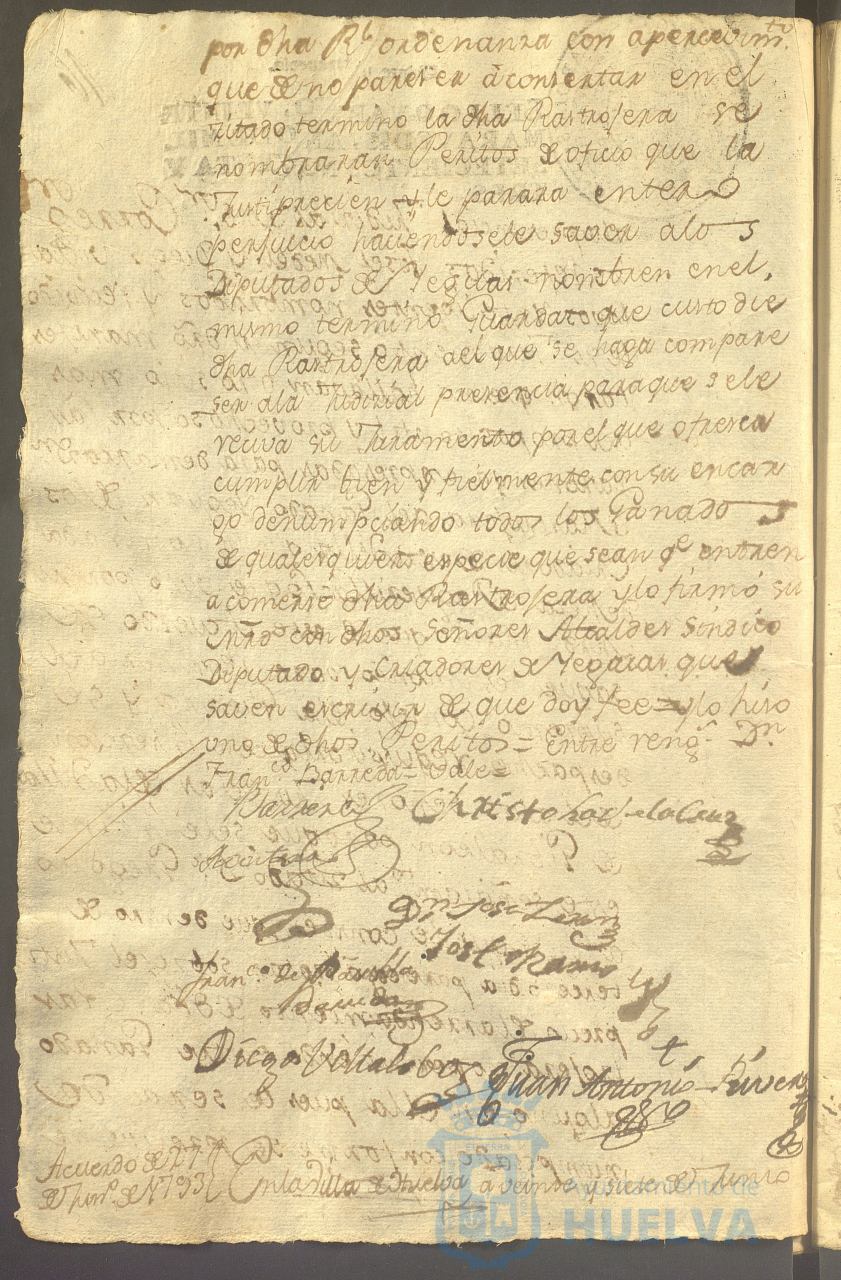 por dha Rl ordenanza con apercevimto
que de no pareser à consertar en el
sitado termino la dha Rastrojera se
nombraran Peritos de oficio que la
Justiprecien y le parara entero
perjuicio haciendosele saver alos
Diputados de Yeguas nombren en el
mismo termino Guarda que custodie
dha Rastrojera ael que se haga compare
ser ala Judicial presencia para que sele
reciva su Juramento por el que ofresca
cumplir bien y fielmente con su encar
go denumpciando todos los Ganados
de qualesquiera especie que sean qe entren
a comerse dha Rastrojera y lo firmó su
mrd con dhos Señores Alcaldes Sindico
Diputado y Criadores de Yeguas que
saven escrivir de que doy fee = y lo hiso
uno de dhos Peritos = Entre rengs Dn
Franco Barreda = Vale =
Barreda
Christobal de la Cruz
Dn Jose
Jose Ramos
Franco de Paula
Diego
Juan Antonio Rivera
Acuerdo de 27
de Juno de 1793
En la Villa de Huelva a veinte y siete de Junio
Ayuntamiento de
HUELVA